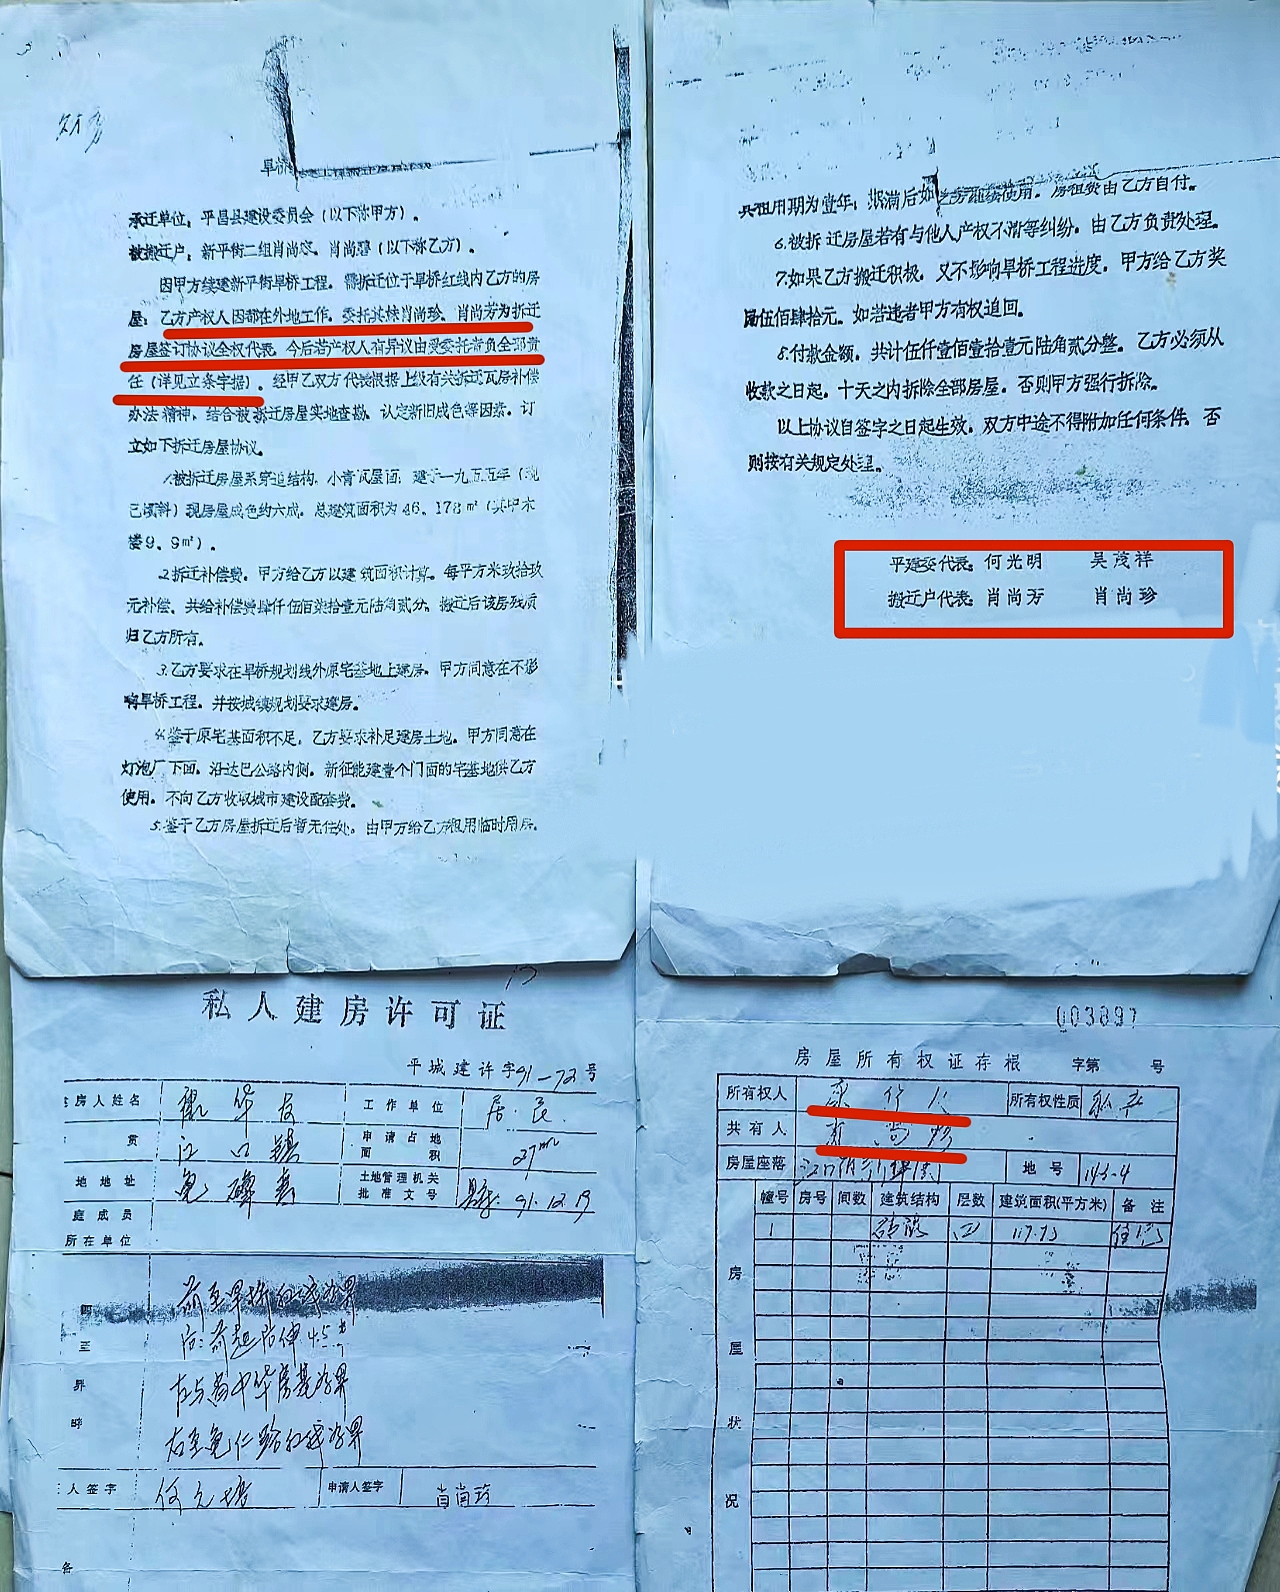 旱桥
承迁单位：平昌县建设委员会（以下称甲方）。
被搬迁户：新平街二组肖尚容、肖尚碧（以下称乙方）。
因甲方续建新平街旱桥工程，需拆迁位于旱桥红线内乙方的房
屋；乙方产权人因都在外地工作，委托其妹肖尚珍、肖尚芳为拆迁
房屋签订协议全权代表，今后若产权人有异议由受委托者负全部责
任（详见立条字据）。经甲乙双方代表根据上级有关拆迁瓦房补偿
办法精神，结合被拆迁房屋实地查勘，认定新旧成色等因素，订
立如下拆迁房屋协议。
1.被拆迁房屋系穿逗结构，小青瓦屋面；建于一九五五年（现
已倾斜）现房屋成色约六成，总建筑面积为46.178㎡（其中木
楼9.9㎡）。
2.拆迁补偿费，甲方给乙方以建筑面积计算，每平方米玖拾玖
元补偿，共给补偿费肆仟伍佰柒拾壹元陆角贰分，搬迁后该房残质
归乙方所有。
3.乙方要求在旱桥规划线外原宅基地上建房，甲方同意在不影
响旱桥工程，并按城镇规划要求建房。
4.鉴于原宅基面积不足，乙方要求补足建房土地，甲方同意在
灯泡厂下面，沿达巴公路内侧，新征能建壹个门面的宅基地供乙方
使用，不向乙方收取城市建设配套费。
5.鉴于乙方房屋拆迁后暂无住处，由甲方给乙方租用临时用房，
其租用期为壹年；期满后如乙方继续使用，房租费由乙方自付。
6.被拆迁房屋若有与他人产权不清等纠纷，由乙方负责处理。
7.如果乙方搬迁积极，又不影响旱桥工程进度，甲方给乙方奖
励伍佰肆拾元，如若违者甲方有权追回。
8.付款金额，共计伍仟壹佰壹拾壹元陆角贰分整，乙方必须从
收款之日起，十天之内拆除全部房屋，否则甲方强行拆除。
以上协议自签字之日起生效，双方中途不得附加任何条件，否
则按有关规定处理。
平建委代表：何光明 吴茂祥
搬迁户代表：肖尚芳 肖尚珍
私人建房许可证
平城建许字91-72号
房人姓名 华友 工作单位 居民
贯 江口镇 申请占地面积 27m²
地地址 土地管理机关批准文号 91.12.19
庭成员
所在单位
四至界畔
前至旱桥红线为界
后：前起后伸4.5米
左与 中华房基为界
右至 仁路红线为界
人签字 何元培 申请人签字 肖尚珍
003897
房屋所有权证存根 字第 号
所有权人 所有权性质 私产
共有人 肖尚珍
房屋座落 江口镇新华街 地号 143-4
幢号 房号 间数 建筑结构 层数 建筑面积(平方米) 备注
1 砖混 四 117.93 住宅
房屋状况